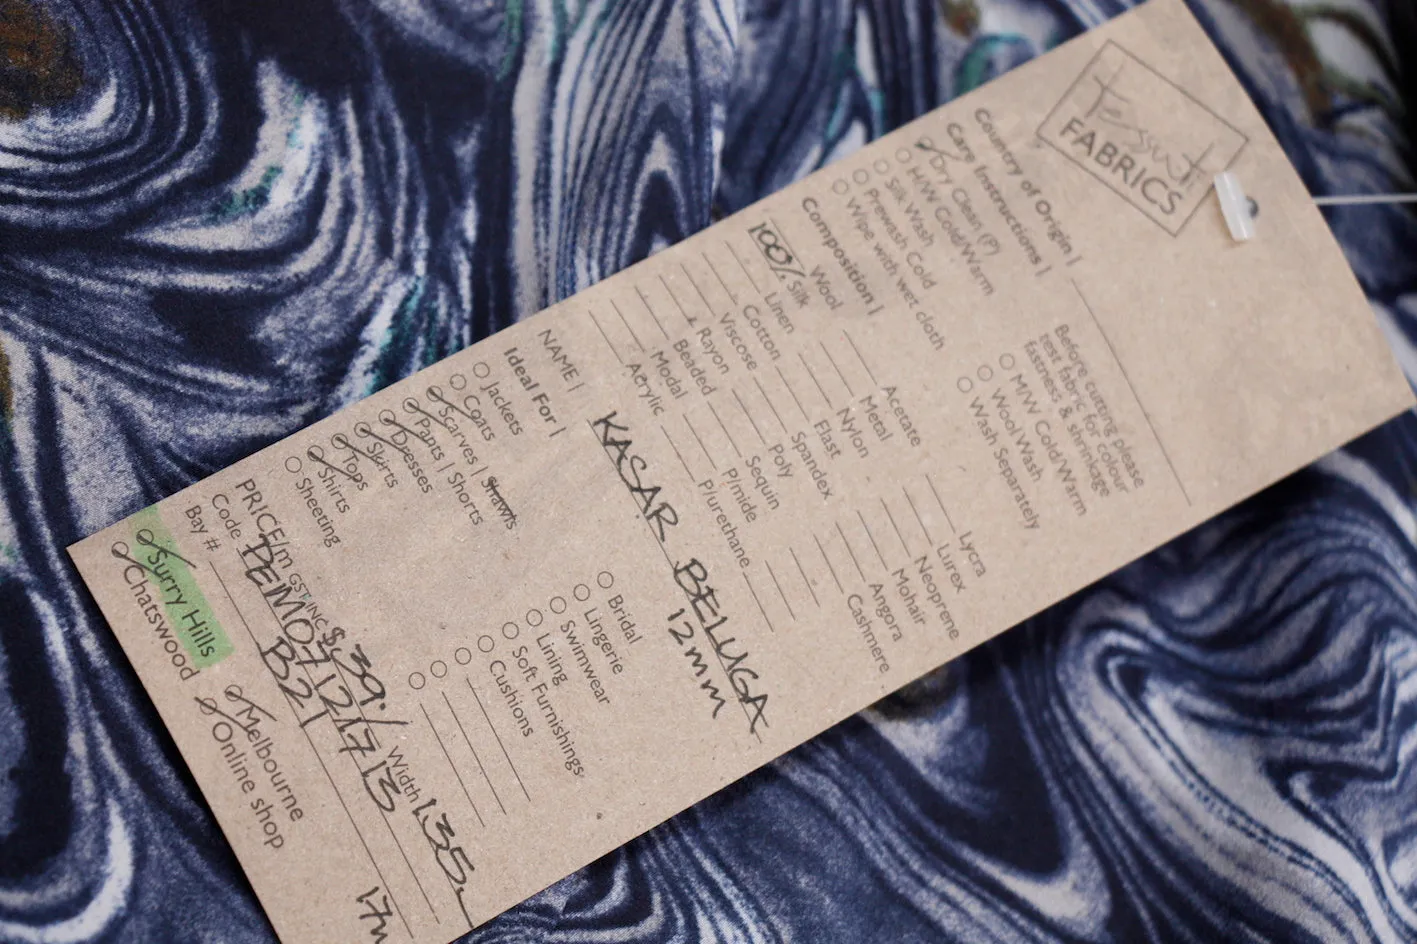 Tessuti
FABRICS
Country of Origin |
Care Instructions |
Dry Clean (P)
H/W Cold/Warm
Silk Wash
Prewash Cold
Wipe with wet cloth
Before cutting please
test fabric for colour
fastness & shrinkage
M/W Cold/Warm
Wool Wash
Wash Separately
Composition |
Wool
100% Silk
Linen
Cotton
Viscose
Rayon
Beaded
Modal
Acrylic
Acetate
Metal
Nylon
Flast
Spandex
Poly
Sequin
P/mide
P/urethane
Lycra
Lurex
Neoprene
Mohair
Angora
Cashmere
NAME | KASAR BELUGA
12mm
Ideal For |
Jackets
Coats
Scarves | Shawls
Pants | Shorts
Dresses
Skirts
Tops
Shirts
Sheeting
Bridal
Lingerie
Swimwear
Lining
Soft Furnishings
Cushions
PRICE/m GST INC $39./ Width 1.35
Code DEMO.7121713
Bay # B21
17m
Surry Hills
Chatswood
Melbourne
Online shop